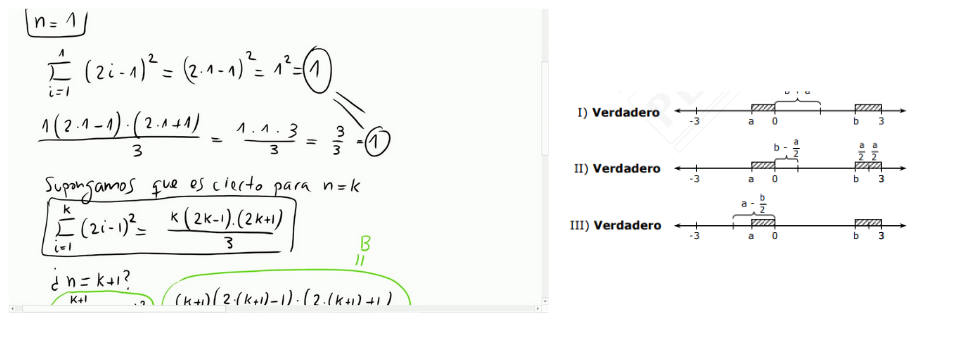 n = 1
1
∑ (2i-1)² = (2·1-1)² = 1² = 1
i=1
1(2·1-1)·(2·1+1) / 3 = 1·1·3 / 3 = 3/3 = 1
Supongamos que es cierto para n=k
k
∑ (2i-1)² = k(2k-1).(2k+1) / 3
i=1
B
=
¿ n = k+1?
k+1
(k+1)(2·(k+1)-1)·(2·(k+1)+1)
I) Verdadero
-3 a 0 b 3
b - a/2 a/2 a/2
II) Verdadero
-3 a 0 b 3
a - b/2
III) Verdadero
-3 a 0 b 3